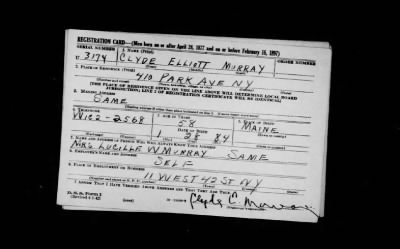 REGISTRATION CARD—(Men born on or after April 28, 1877 and on or before February 16, 1897)
SERIAL NUMBER 1. NAME (Print) ORDER NUMBER
U 3174 CLYDE ELLIOTT MURRAY
2. PLACE OF RESIDENCE (Print)
410 PARK AVE NY
[THE PLACE OF RESIDENCE GIVEN ON THE LINE ABOVE WILL DETERMINE LOCAL BOARD
JURISDICTION; LINE 2 OF REGISTRATION CERTIFICATE WILL BE IDENTICAL]
3. MAILING ADDRESS
SAME
4. TELEPHONE 5. AGE IN YEARS 6. PLACE OF BIRTH
WIC2-2568 58 MAINE
DATE OF BIRTH
1 28 84
7. NAME AND ADDRESS OF PERSON WHO WILL ALWAYS KNOW YOUR ADDRESS
MRS LUCILLE W MURRAY SAME
8. EMPLOYER'S NAME AND ADDRESS
SELF
9. PLACE OF EMPLOYMENT OR BUSINESS
11 WEST 42 ST NY
I AFFIRM THAT I HAVE VERIFIED ABOVE ANSWERS AND THAT THEY ARE TRUE.
D. S. S. Form 1
Clyde E. Murray